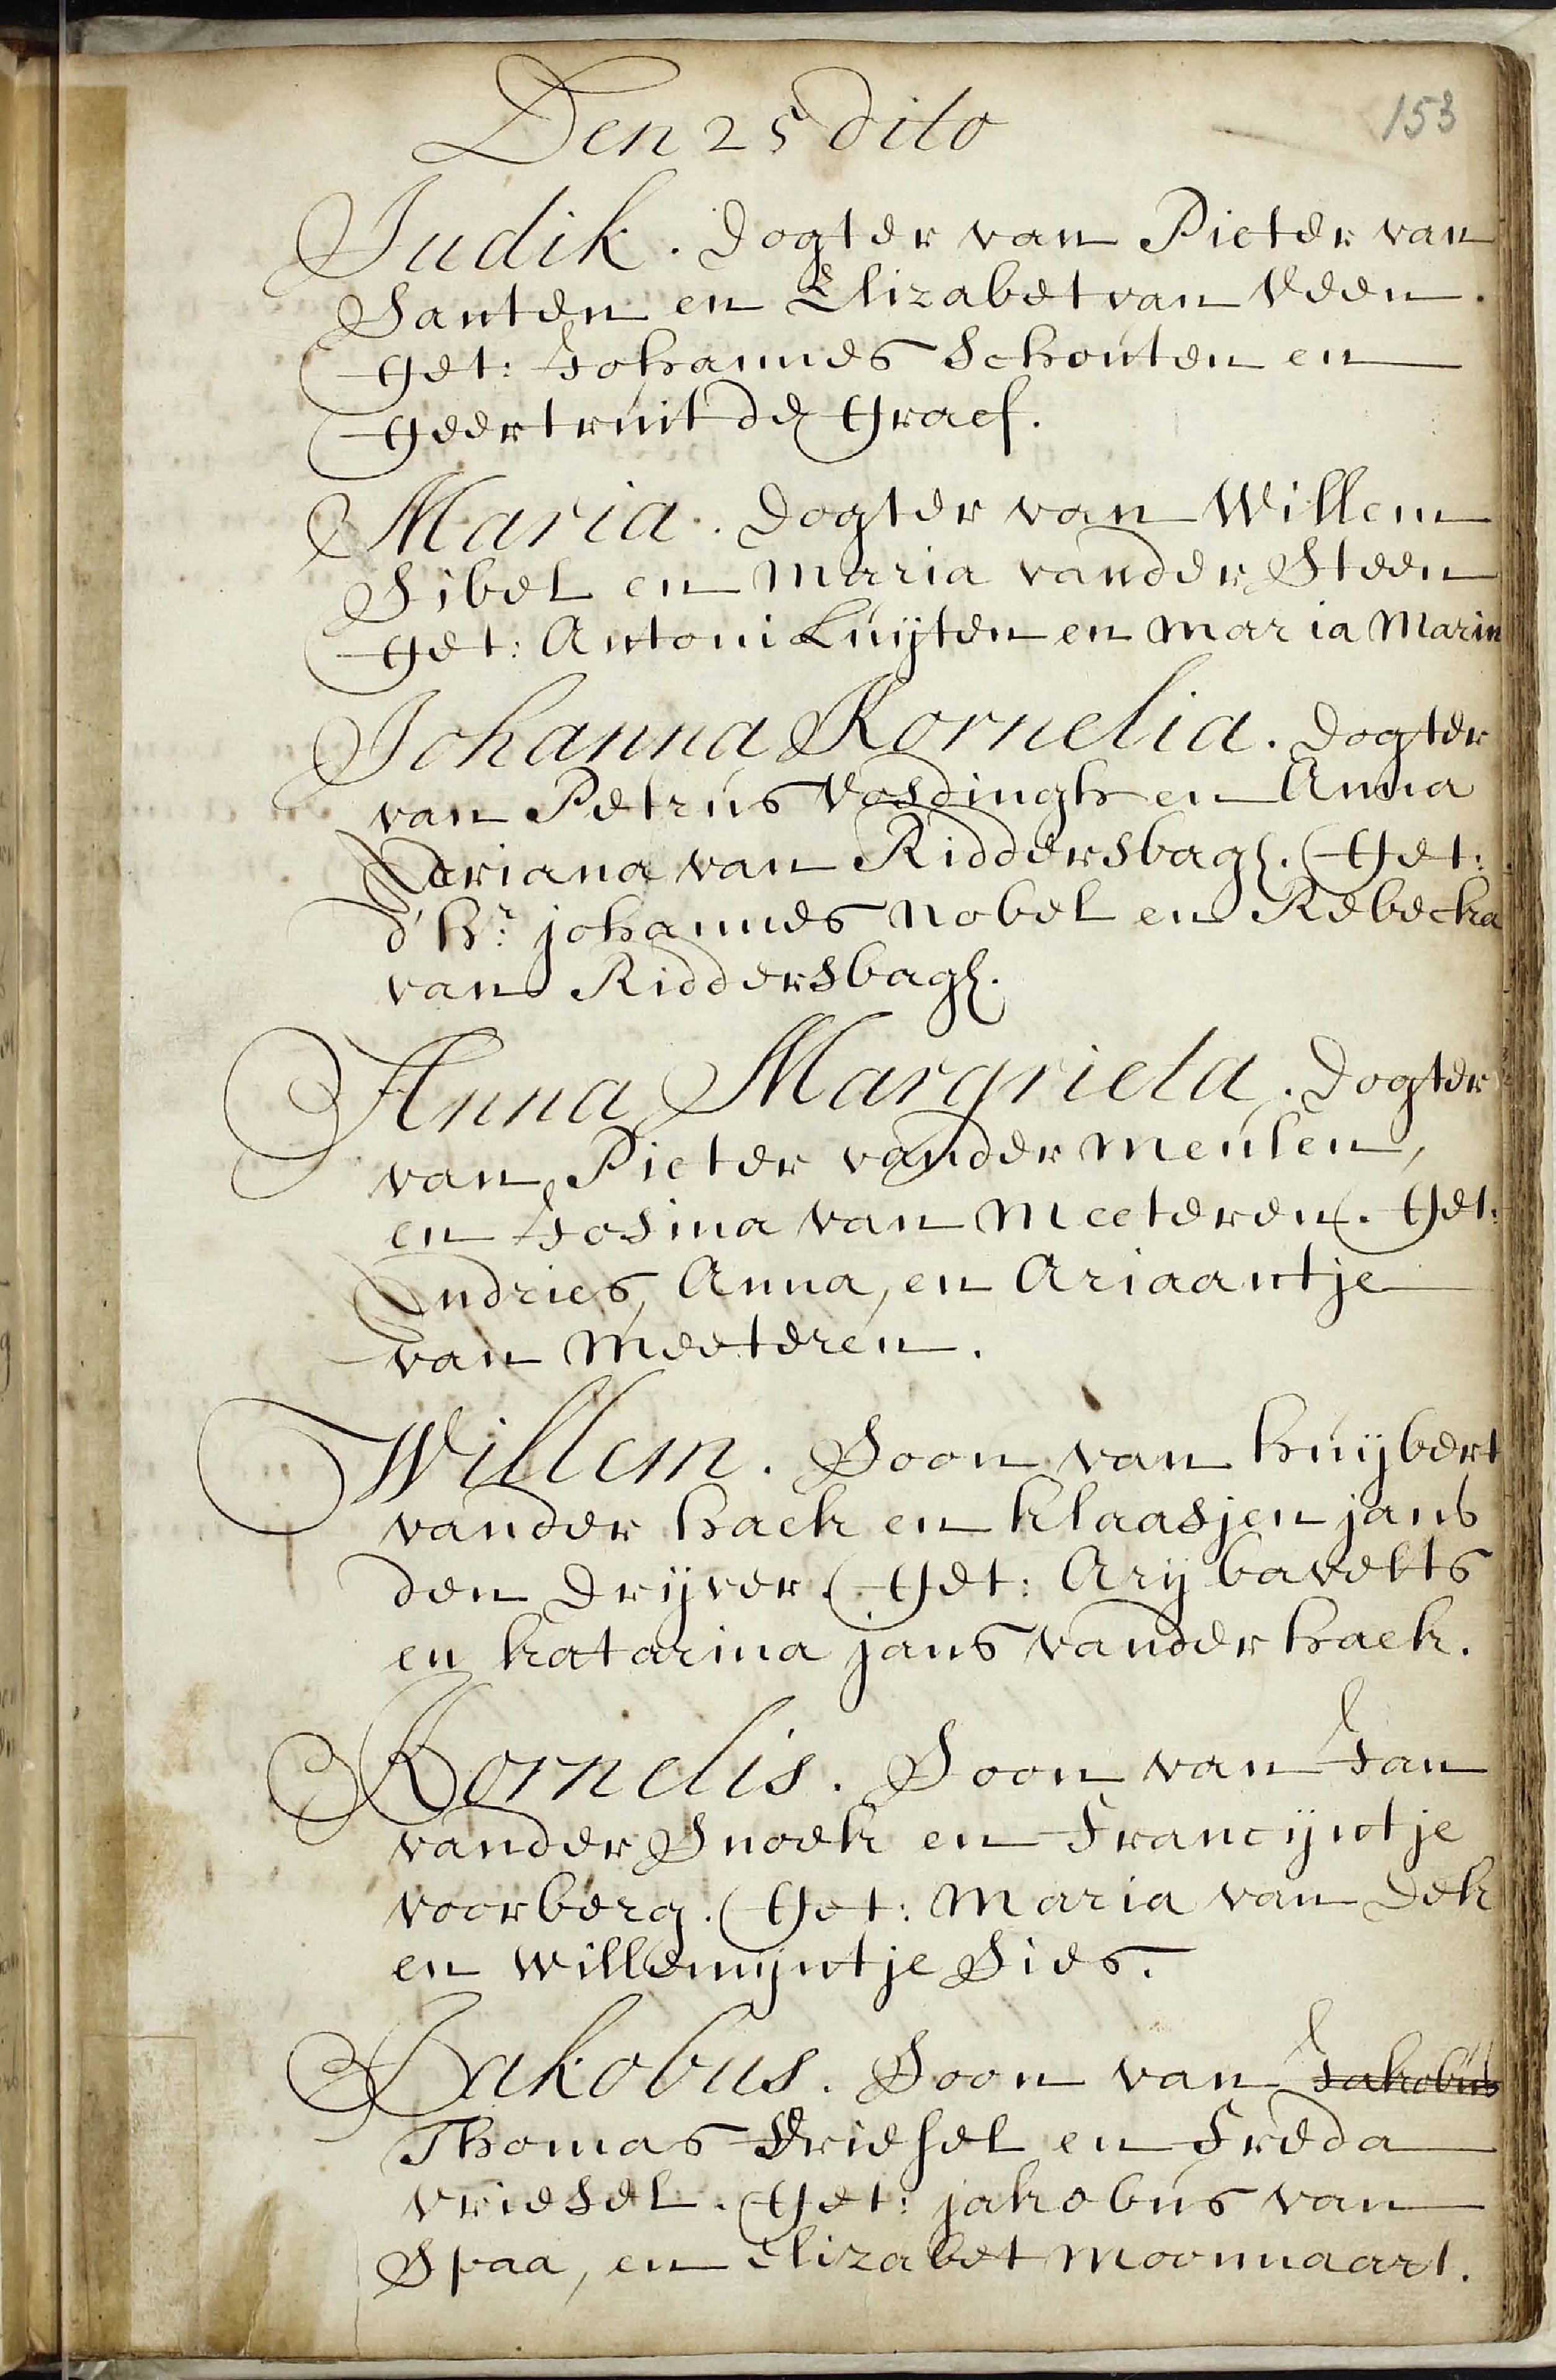 153
Den 25 dito
Judik. Dogter van Pieter van
Santen en Elizabet van Veen.
Get: Johannes Schouten en
Geertruit de Graef.
Maria. Dogter van Willem
Sibel en Maria vander Steen
Get: Antoni Luijten en Maria Marin
Johanna Kornelia. Dogter
van Petrus Vosdingh en Anna
Adriana van Riddersbagh. Get:
d'hr: Johannes Nobel en Rebecka
van Riddersbagh.
Anna Margrieta. Dogter
van Pieter vander Meulen,
en Josina van Meeteren. Get:
Andries, Anna, en Ariaantje
van Meeteren.
Willem. Soon van Huijbert
vander Haek en Klaasjen Jans
den Drijver. Get: Arij
en Katarina Jans vander Haek.
Kornelis. Soon van Jan
vander Snoek en Francijntje
Voorberg. Get: Maria van Dek
en Willemijntje Sies.
Jakobus. Soon van Jakobus
Thomas Vriesel en Freda
Vriesel. Get: Jakobus van
Spaa, en Elizabet Moonnaart.